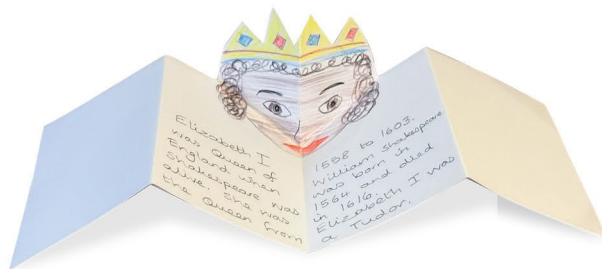 Elizabeth I
was Queen of
England when
Shakespeare was
alive. She was
the Queen from
1558 to 1603.
William Shakespeare
was born in
1564 and died
in 1616.
Elizabeth I was
a Tudor.